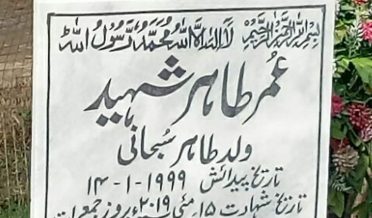 بسم اللہ الرحمن الرحیم لا الہ الا اللہ محمد رسول اللہ
عمر طاہر شہید
ولد طاہر سبحانی
تاریخ پیدائش 1999-1-14
تاریخ شہادت ۱۵ مئی ۲۰۱۹ء بروز جمعرات